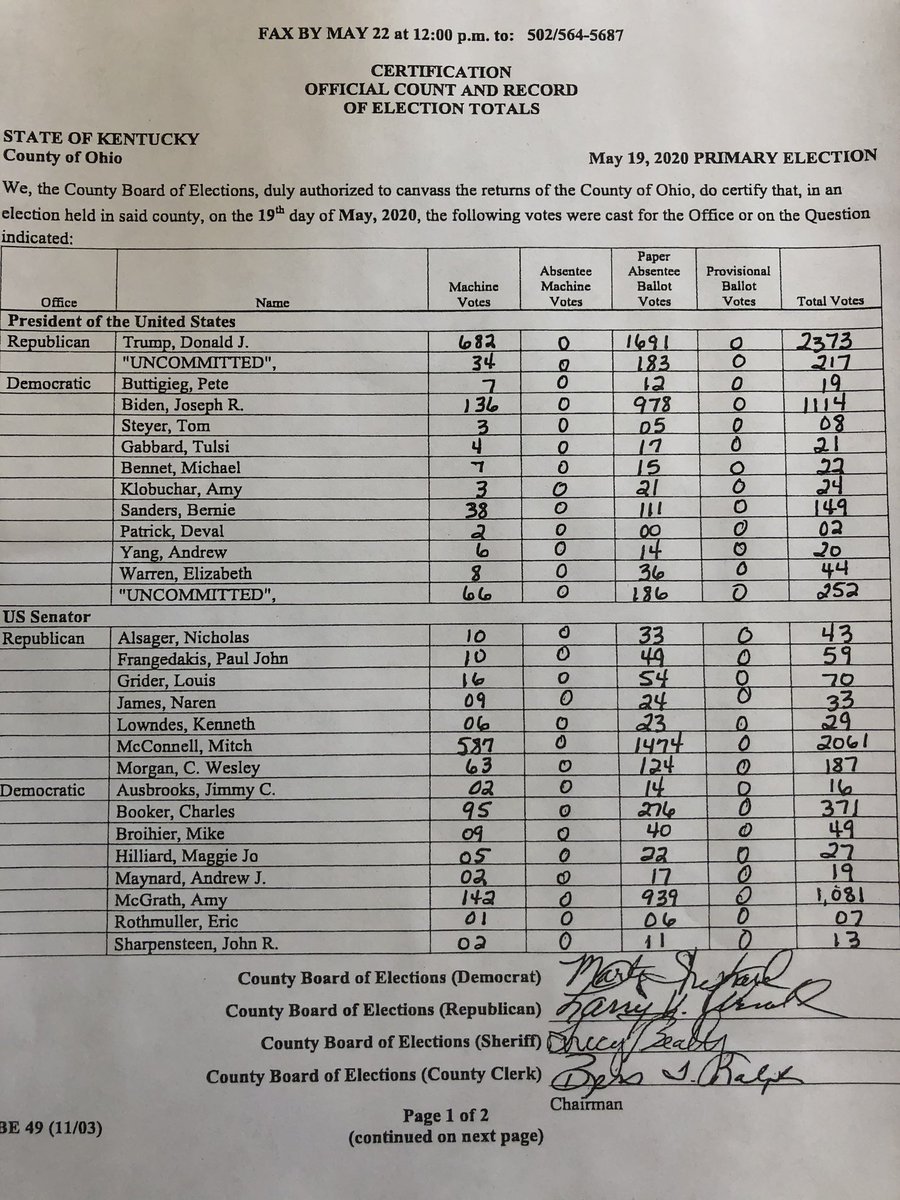 FAX BY MAY 22 at 12:00 p.m. to: 502/564-5687
CERTIFICATION
OFFICIAL COUNT AND RECORD
OF ELECTION TOTALS
STATE OF KENTUCKY
County of Ohio May 19, 2020 PRIMARY ELECTION
We, the County Board of Elections, duly authorized to canvass the returns of the County of Ohio, do certify that, in an
election held in said county, on the 19th day of May, 2020, the following votes were cast for the Office or on the Question
indicated:
Office Name Machine Votes Absentee Machine Votes Paper Absentee Ballot Votes Provisional Ballot Votes Total Votes
President of the United States
Republican Trump, Donald J. 682 0 1691 0 2373
"UNCOMMITTED", 34 0 183 0 217
Democratic Buttigieg, Pete 7 0 12 0 19
Biden, Joseph R. 136 0 978 0 1114
Steyer, Tom 3 0 05 0 08
Gabbard, Tulsi 4 0 17 0 21
Bennet, Michael 7 0 15 0 22
Klobuchar, Amy 3 0 21 0 24
Sanders, Bernie 38 0 111 0 149
Patrick, Deval 2 0 00 0 02
Yang, Andrew 6 0 14 0 20
Warren, Elizabeth 8 0 36 0 44
"UNCOMMITTED", 66 0 186 0 252
US Senator
Republican Alsager, Nicholas 10 0 33 0 43
Frangedakis, Paul John 10 0 49 0 59
Grider, Louis 16 0 54 0 70
James, Naren 09 0 24 0 33
Lowndes, Kenneth 06 0 23 0 29
McConnell, Mitch 587 0 1474 0 2061
Morgan, C. Wesley 63 0 124 0 187
Democratic Ausbrooks, Jimmy C. 02 0 14 0 16
Booker, Charles 95 0 276 0 371
Broihier, Mike 09 0 40 0 49
Hilliard, Maggie Jo 05 0 22 0 27
Maynard, Andrew J. 02 0 17 0 19
McGrath, Amy 142 0 939 0 1,081
Rothmuller, Eric 01 0 06 0 07
Sharpensteen, John R. 02 0 11 0 13
County Board of Elections (Democrat)
County Board of Elections (Republican) Larry
County Board of Elections (Sheriff) Beatty
County Board of Elections (County Clerk) Bess T. Ralph
Chairman
Page 1 of 2
BE 49 (11/03)
(continued on next page)